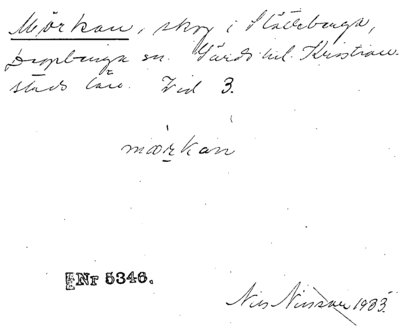 Mörkan, skog i Slätteberga,
Degeberga sn. Gärds hd. Kristian-
stads län. Ved 3.
mœrkán
Nr 5346.
Nils Nilsson 1933.